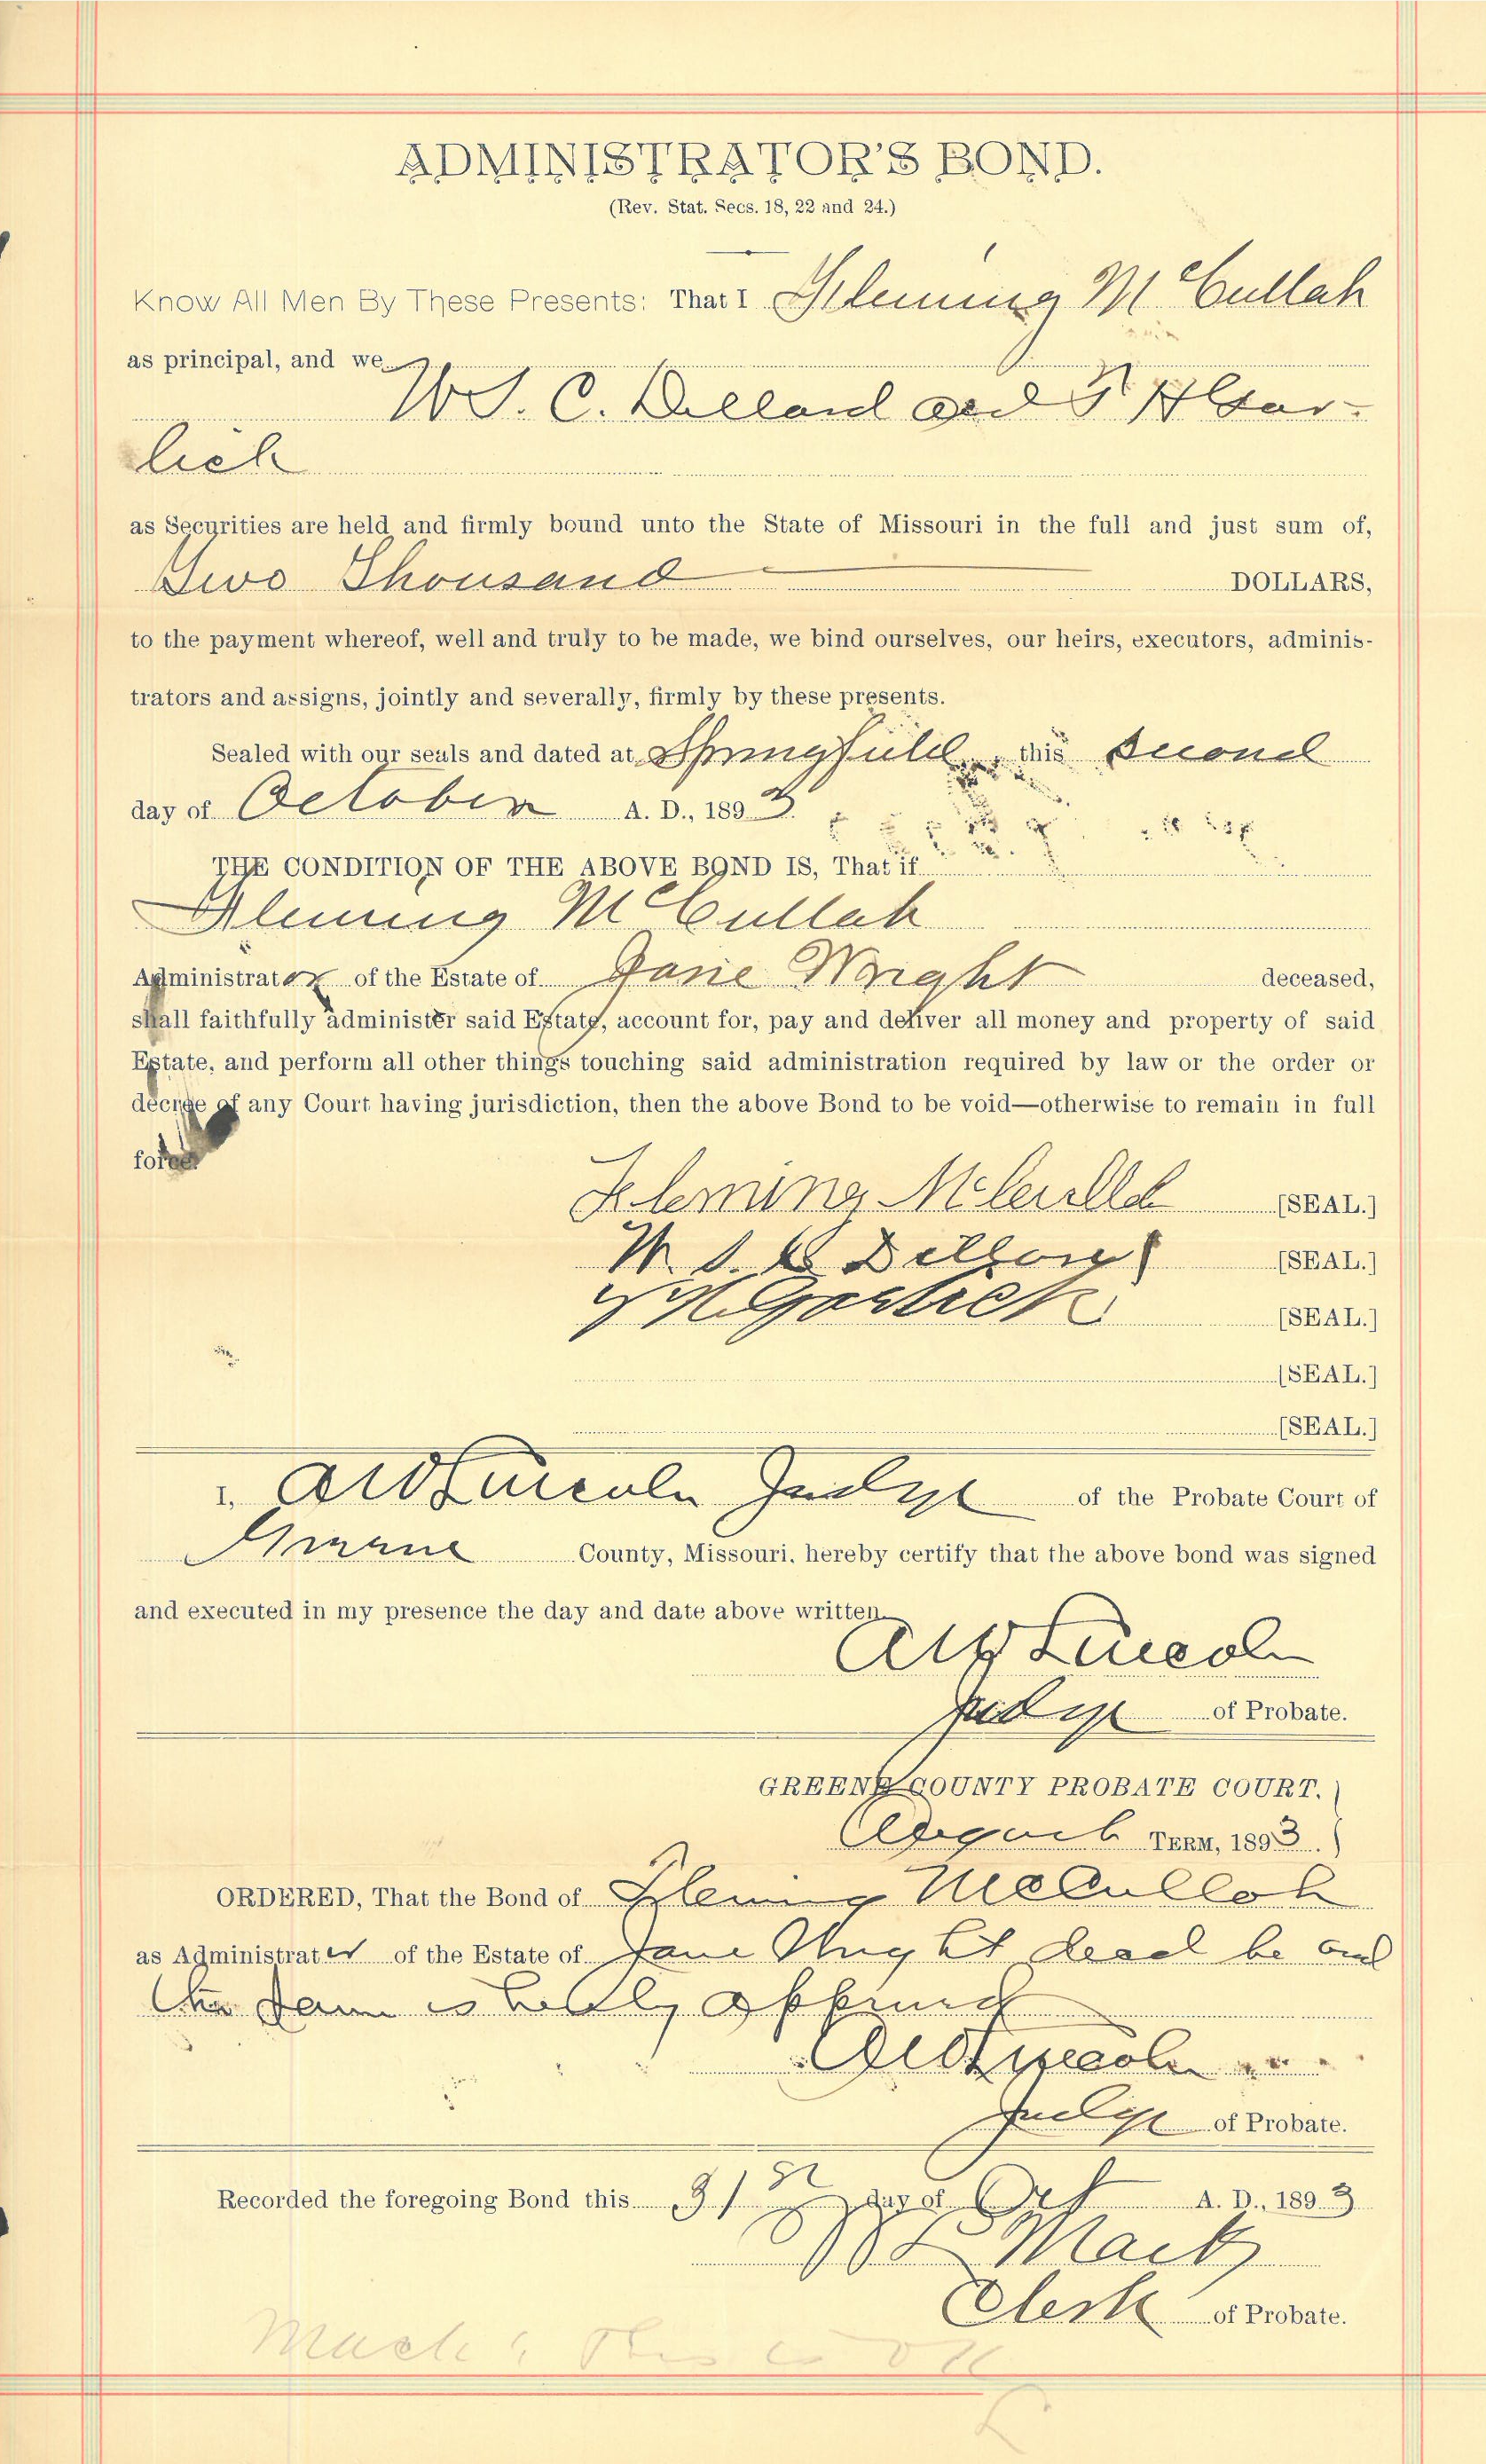 ADMINISTRATOR'S BOND.
(Rev. Stat. Secs. 18, 22 and 24.)
Know All Men By These Presents: That I Fleming McCullah
as principal, and we
W. S. C. Dillard and T H Gar-
lick
as Securities are held and firmly bound unto the State of Missouri in the full and just sum of,
Two Thousand DOLLARS,
to the payment whereof, well and truly to be made, we bind ourselves, our heirs, executors, adminis-
trators and assigns, jointly and severally, firmly by these presents.
Sealed with our seals and dated at Springfield, this second
day of October A. D., 1893.
THE CONDITION OF THE ABOVE BOND IS, That if
Fleming McCullah
Administrator of the Estate of Jane Wright deceased,
shall faithfully administer said Estate, account for, pay and deliver all money and property of said
Estate, and perform all other things touching said administration required by law or the order or
decree of any Court having jurisdiction, then the above Bond to be void—otherwise to remain in full
force.
Fleming [SEAL.]
W. S. C. [SEAL.]
Garlick [SEAL.]
[SEAL.]
[SEAL.]
I, A W Lincoln Judge of the Probate Court of
Greene County, Missouri, hereby certify that the above bond was signed
and executed in my presence the day and date above written.
A W Lincoln
Judge of Probate.
GREENE COUNTY PROBATE COURT.
August TERM, 1893.
ORDERED, That the Bond of Fleming McCulloh
as Administrator of the Estate of Jane Wright decd be and
the same is hereby approved
A W Lincoln
Judge of Probate.
Recorded the foregoing Bond this 31st day of Oct A. D., 1893
Mack
Clerk of Probate.